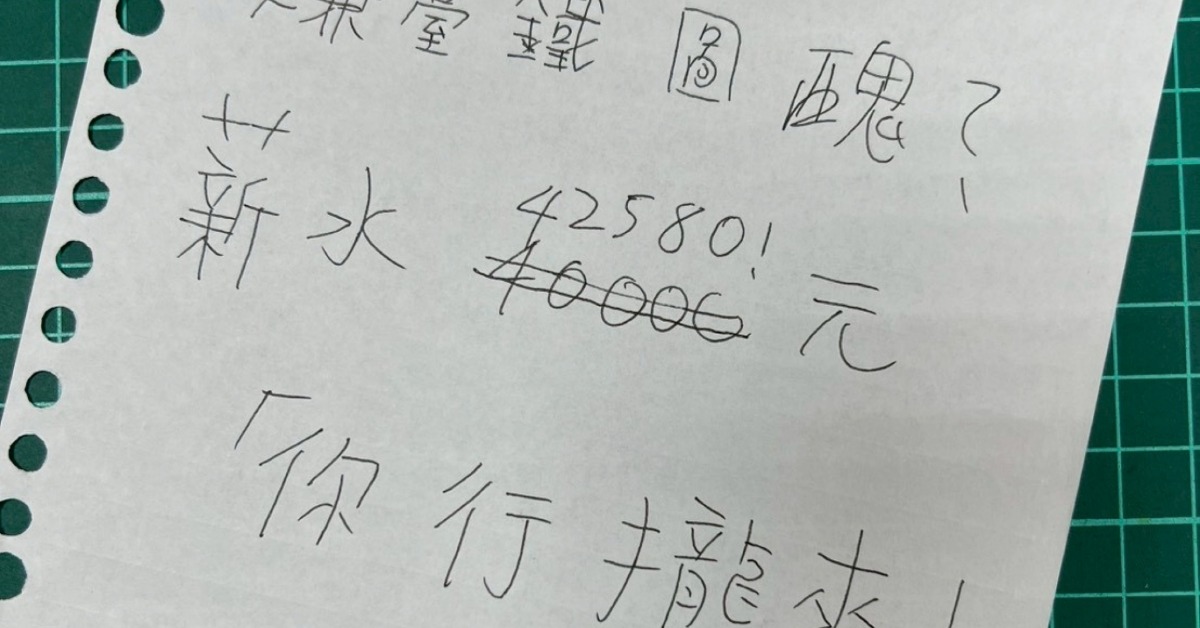 嫌臺鐵圖醜?
薪水 42580!
40000 元
「你行攏來!